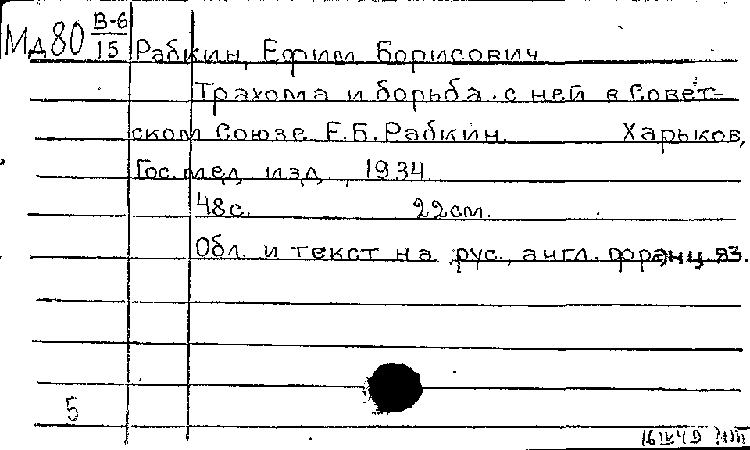 Мд80 В-6/15 Рабкин, Ефим Борисович
Трахома и борьба с ней в Совет-
ском Союзе. Е.Б.Рабкин. Харьков,
Гос.мед.изд., 1934
48с. 22см.
Обл. и текст на рус., англ. франц. яз.
5